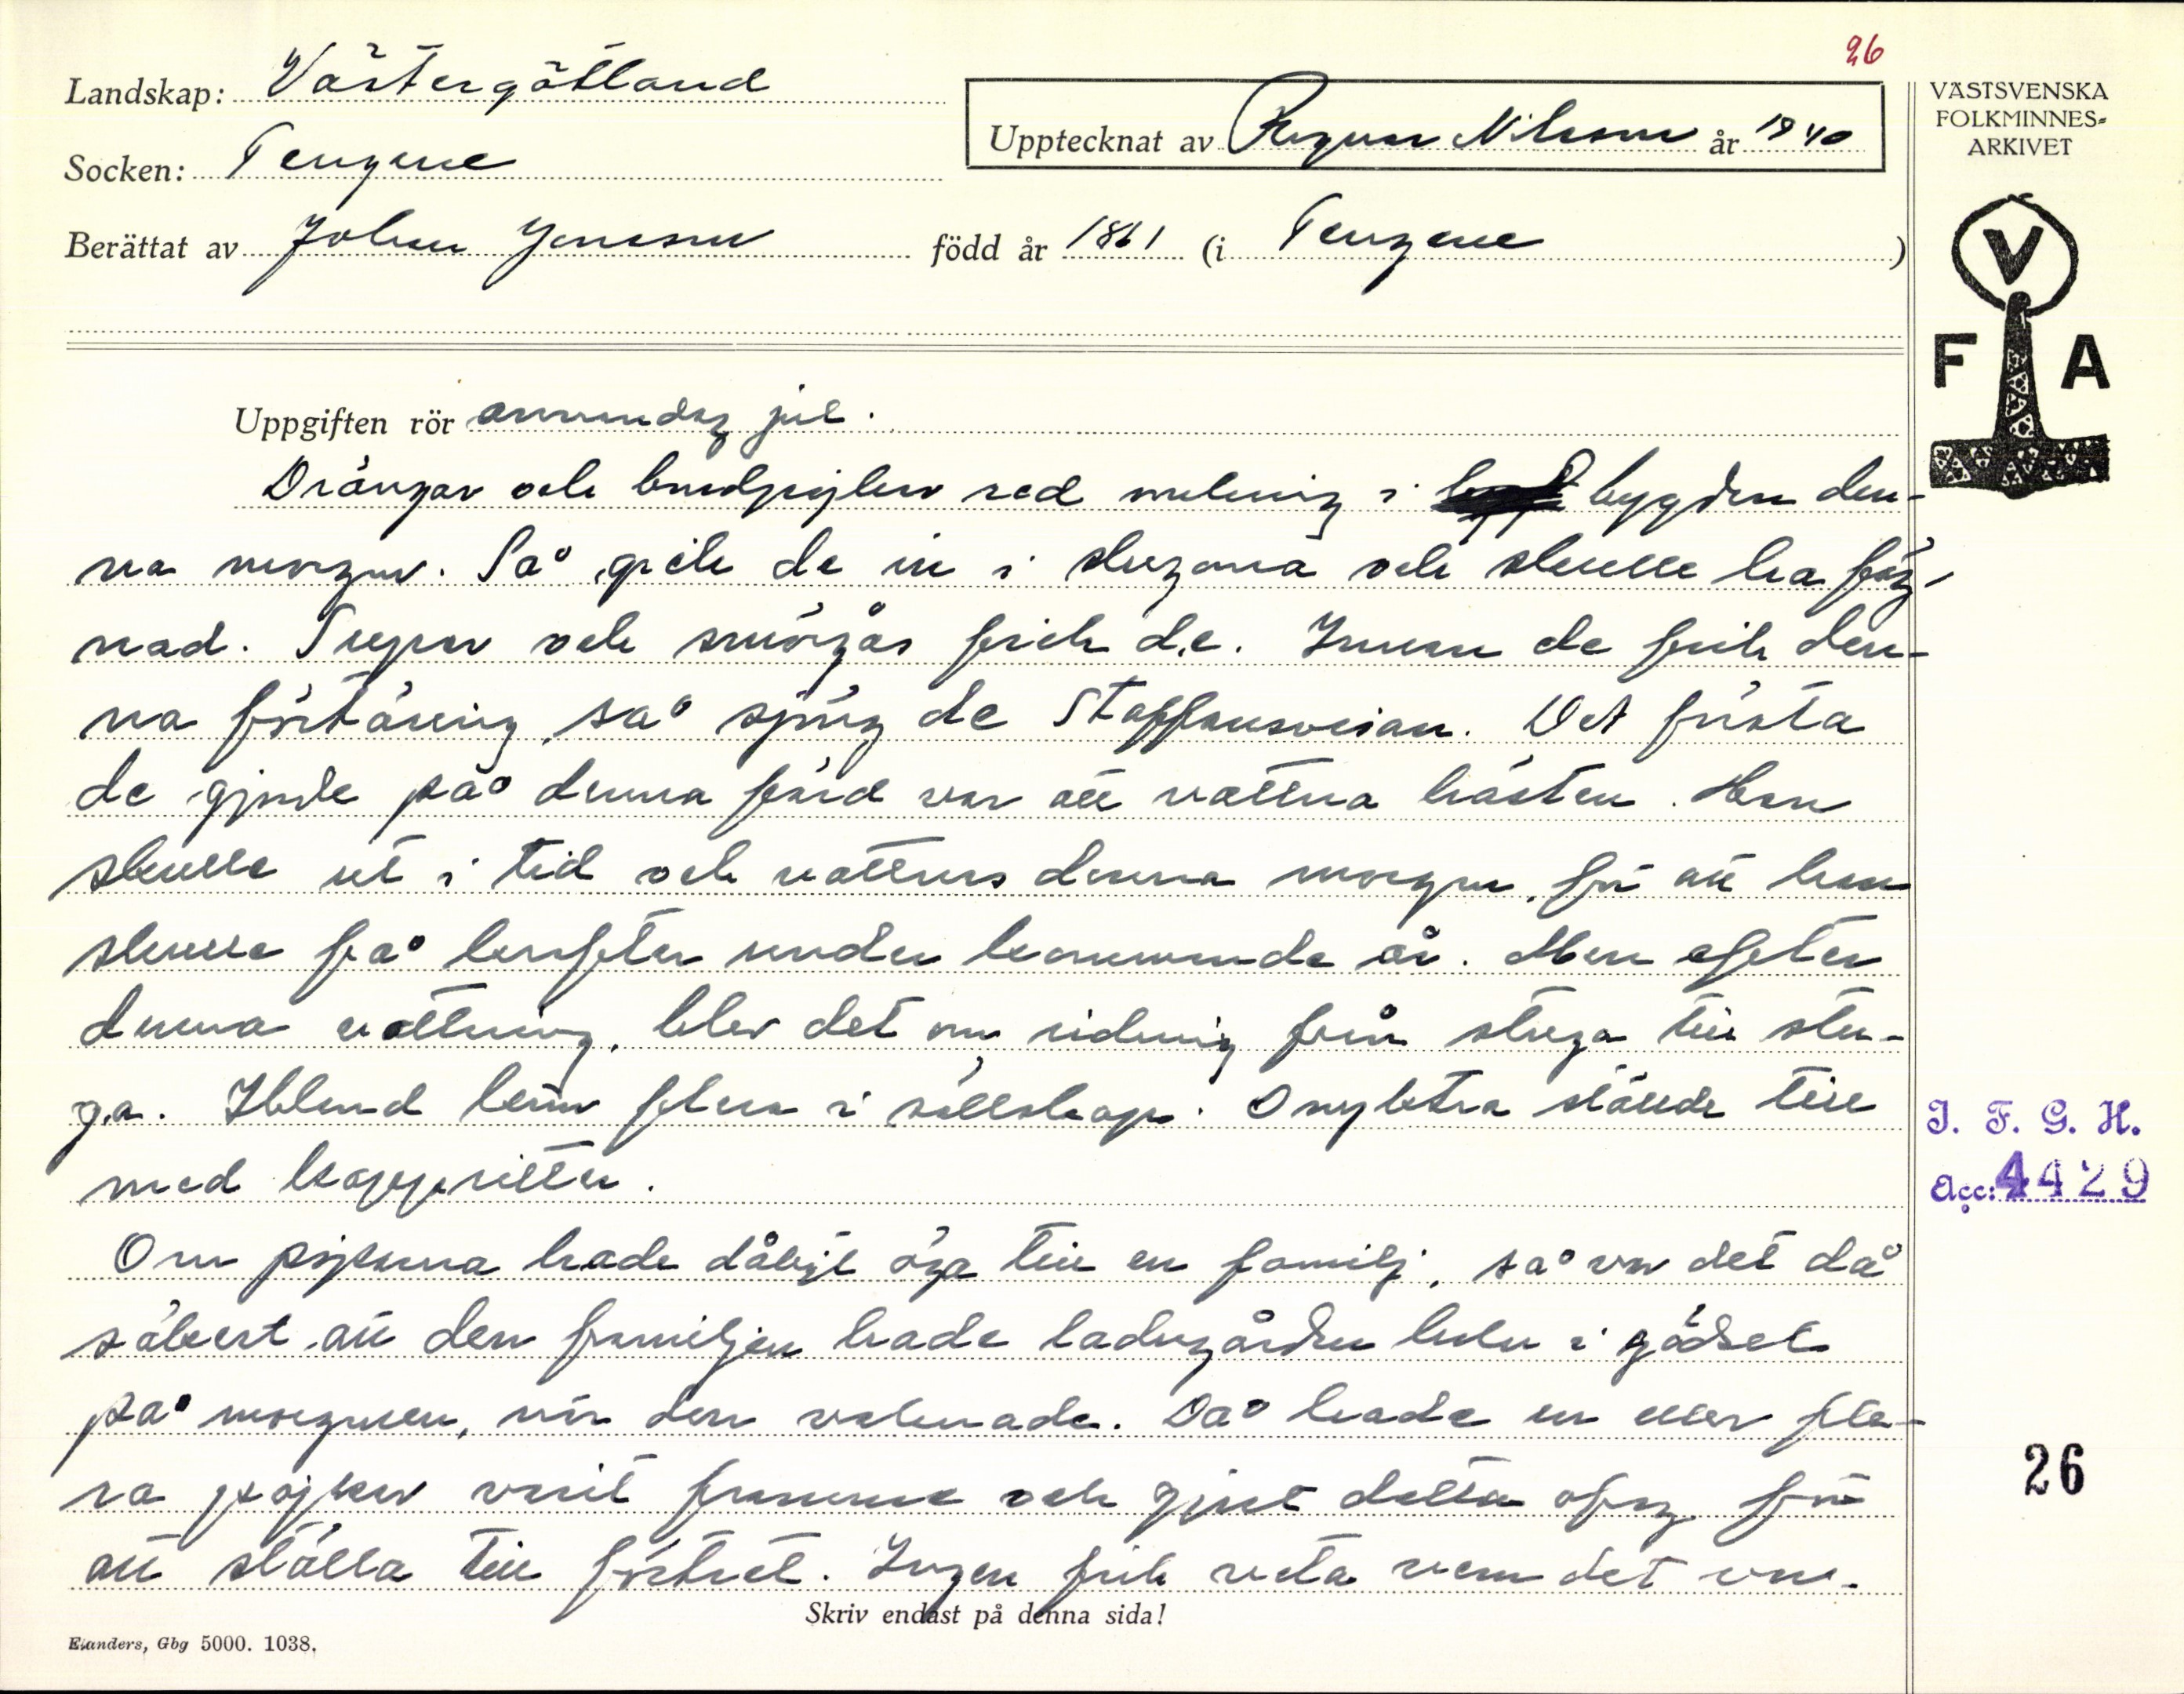 26
Landskap: Västergötland
Upptecknat av Ragnar Nilsson år 1940
Socken: Tengene
Berättat av Johan Jonsson född år 1861 (i Tengene)
VÄSTSVENSKA
FOLKMINNES-
ARKIVET
V
F A
Uppgiften rör annandag jul.
Drängar och bondpojkar red omkring i bygden den-
na morgon. Så gick de in i stugorna och skulle ha fäg-
nad. Supar och smörgås fick de. Innan de fick den-
na förtäring, så sjöng de Staffansvisan. Det första
de gjorde på denna färd var att vattna hästen. Han
skulle ut i tid och vattnas denna morgon, för att han
skulle få krafter under kommande år. Men efter
denna vattning, blev det om ridning från stuga till stu-
ga. Ibland kom flera i sällskap. Omyktra ställde till
med kappritter.
Om pojkarna hade dåligt öga till en familj, så var det då
säkert att den familjen hade ladugården full i gödsel
på morgonen, när den vaknade. Då hade en eller fle-
ra pojkar varit framme och gjort detta ofog för
att ställa till förtret. Ingen fick veta vem det var.
Skriv endast på denna sida!
Elanders, Gbg 5000. 1038.
I. F. G. H.
Acc: 4429
26